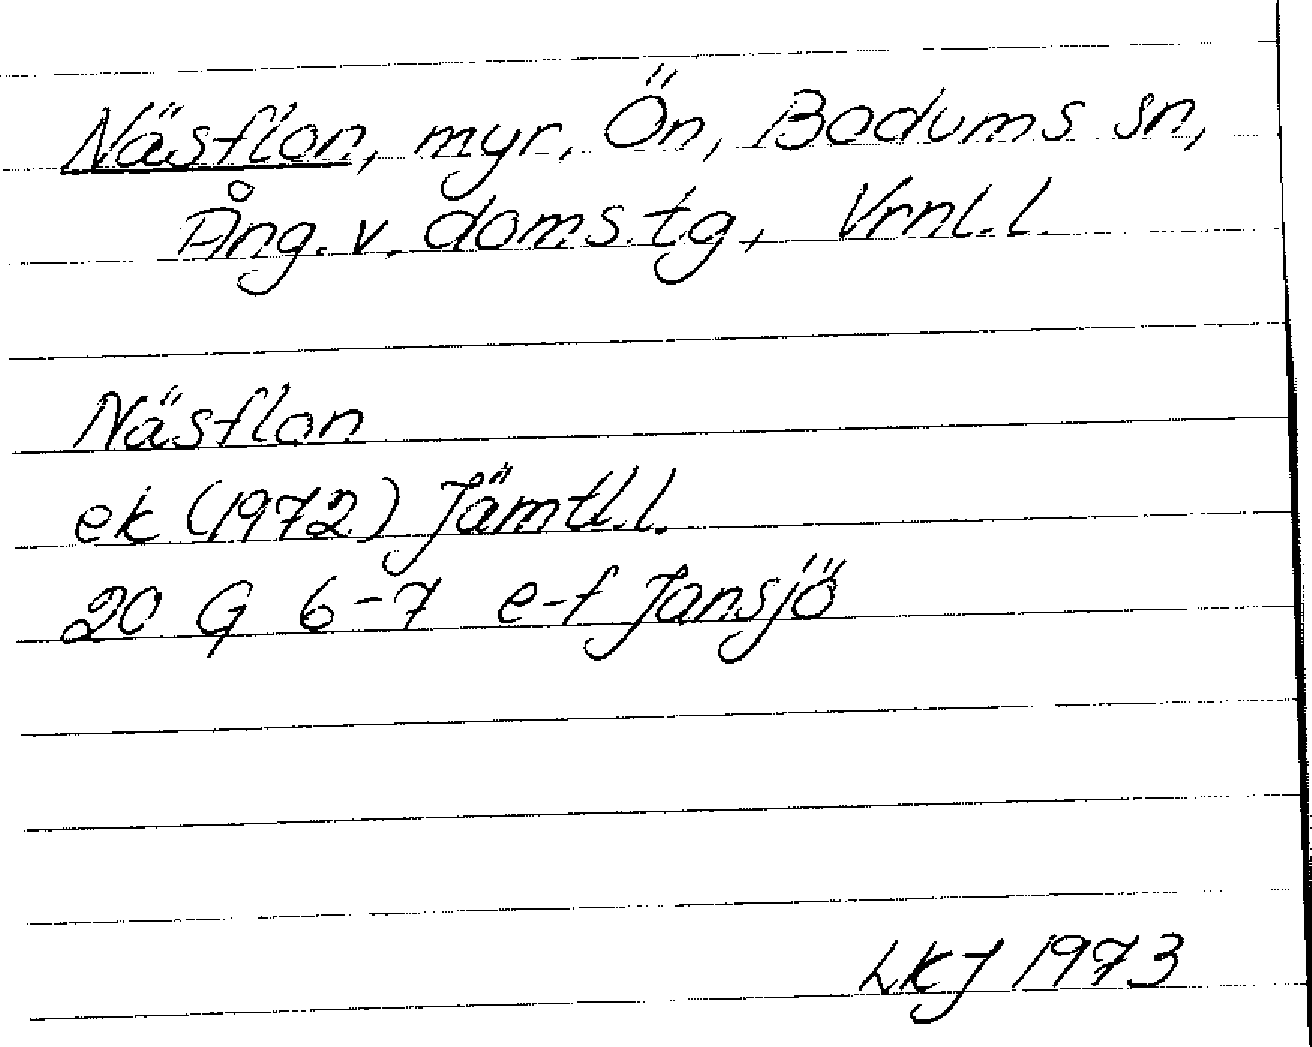 Näsflon, myr, Ön, Bodums sn,
Ång. v. doms.tg, Vrnl.l.
Näsflon
ek (1972) Jämtl.l.
20 G 6-7 e-f Jansjö
LKJ 1973